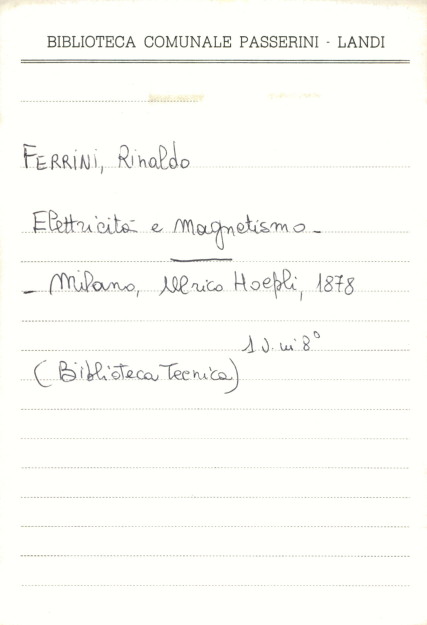 BIBLIOTECA COMUNALE PASSERINI - LANDI
FERRINI, Rinaldo
Elettricità e Magnetismo -
- Milano, Ulrico Hoepli, 1878
1 v. in 8°
(Biblioteca Tecnica)